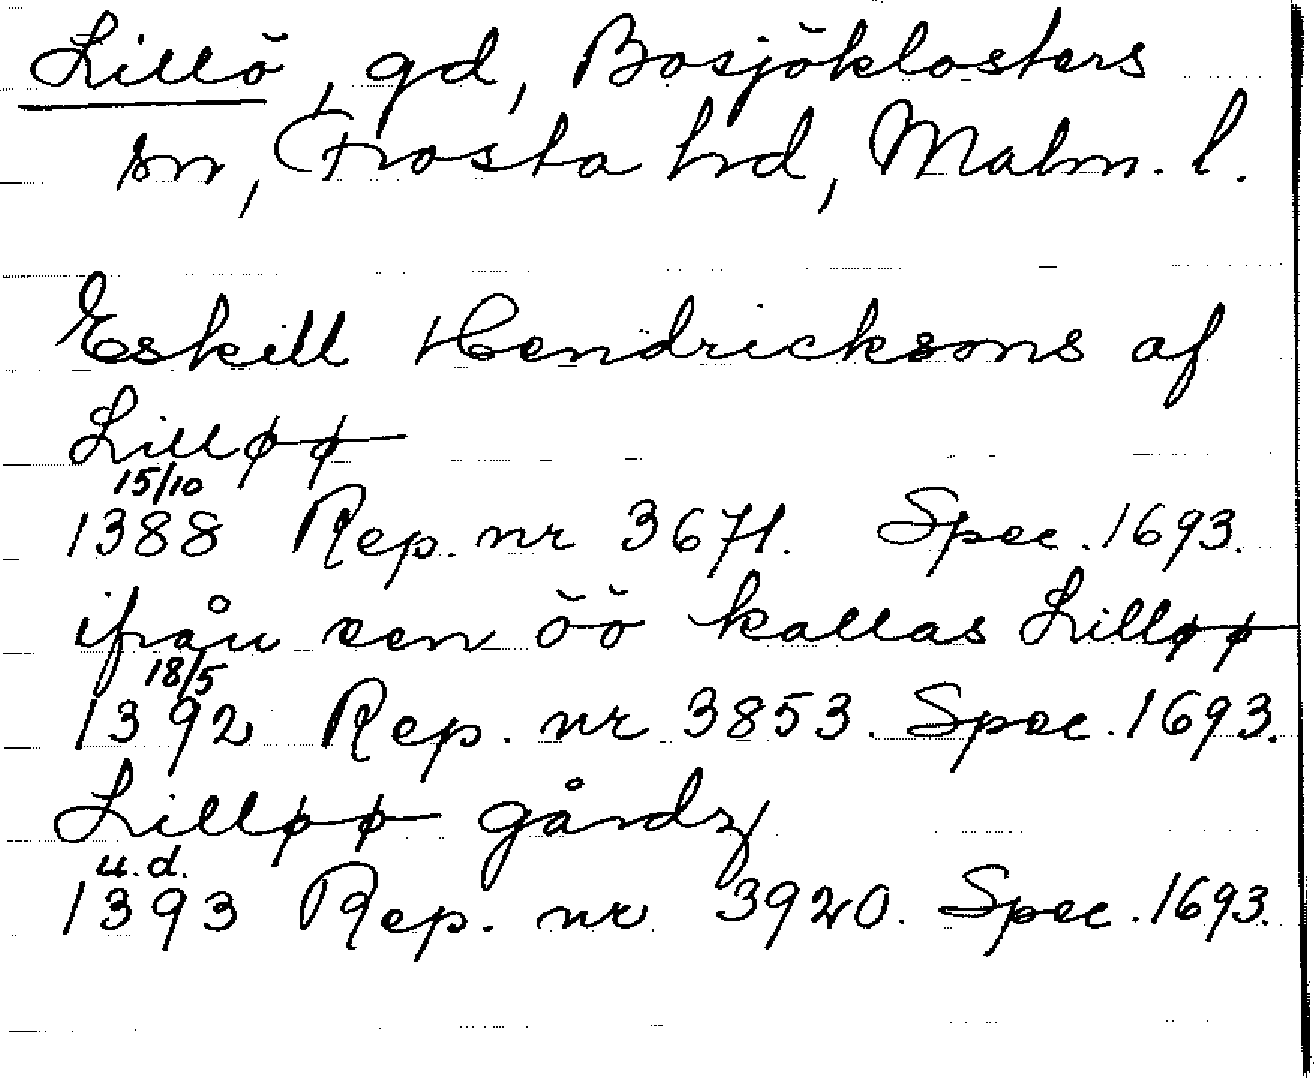 Lillö, gd, Bosjöklosters
sn, Frosta hd, Malm. l.
Eskill Hendricksons af
Lilløø
15/10
1388 Rep. nr 3671. Spec. 1693.
ifrån een öö kallas Lilløø
18/5
1392 Rep. nr 3853. Spec. 1693.
Lilløø gårdz
u.d.
1393 Rep. nr 3920. Spec. 1693.